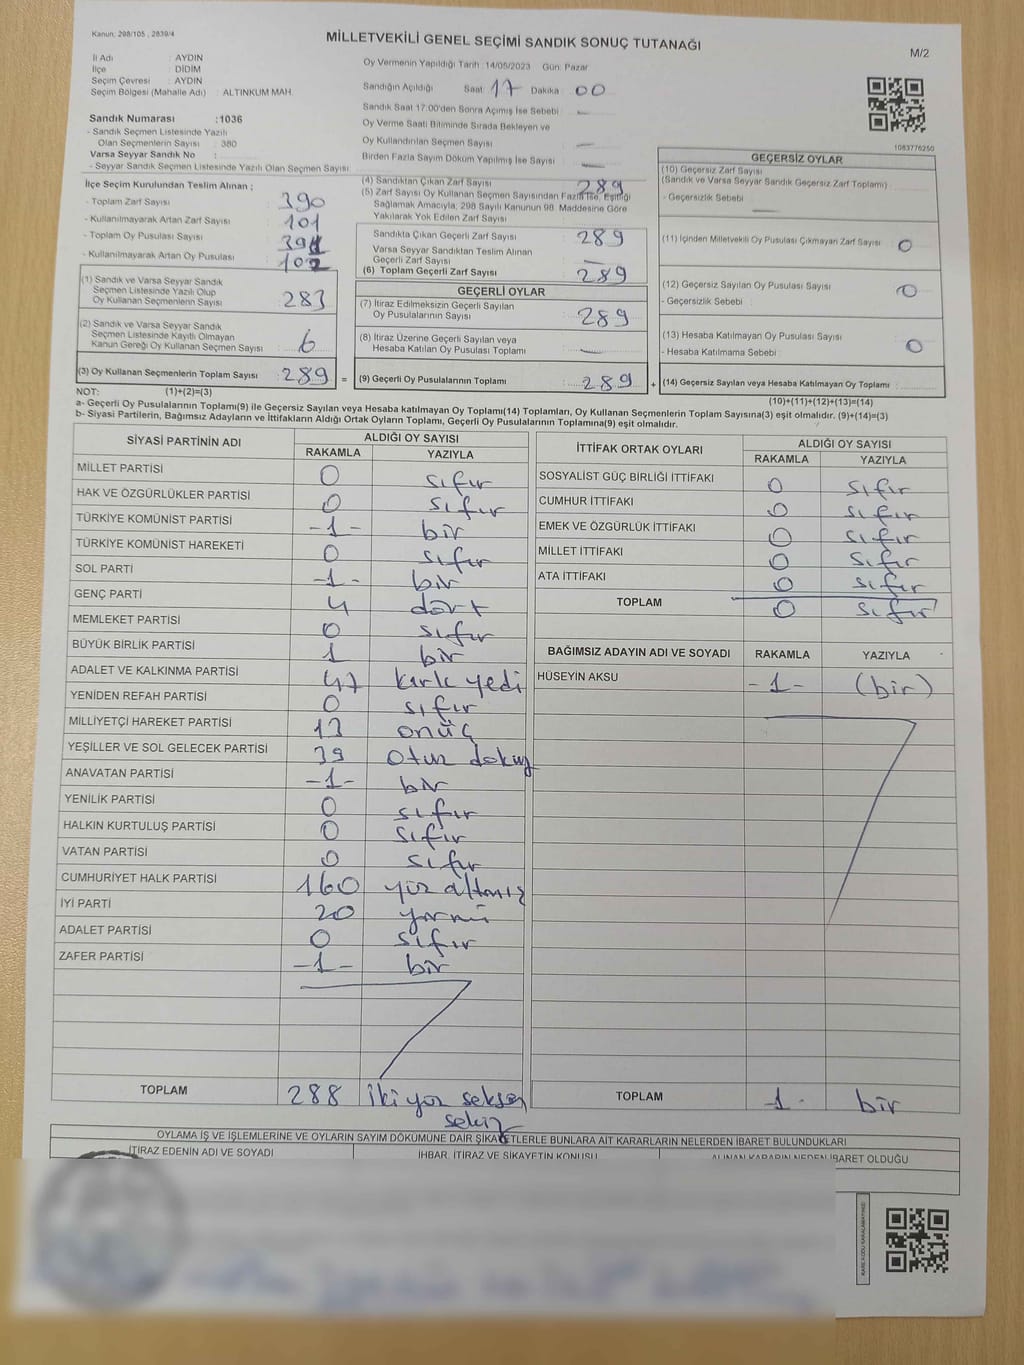 Kanun: 298/105 , 2839/4
MİLLETVEKİLİ GENEL SEÇİMİ SANDIK SONUÇ TUTANAĞI
M/2
İl Adı : AYDIN
İlçe : DİDİM
Seçim Çevresi : AYDIN
Seçim Bölgesi (Mahalle Adı) : ALTINKUM MAH.
Oy Vermenin Yapıldığı Tarih: 14/05/2023 Gün: Pazar
Sandığın Açıldığı Saat 17 Dakika 00
Sandık Saat 17:00'den Sonra Açımış İse Sebebi :
Oy Verme Saati Bitiminde Sırada Bekleyen ve
Oy Kullandırılan Seçmen Sayısı :
Birden Fazla Sayım Döküm Yapılmış İse Sayısı :
Sandık Numarası :1036
- Sandık Seçmen Listesinde Yazılı
Olan Seçmenlerin Sayısı : 380
Varsa Seyyar Sandık No :
- Seyyar Sandık Seçmen Listesinde Yazılı Olan Seçmen Sayısı
1083776250
İlçe Seçim Kurulundan Teslim Alınan ;
- Toplam Zarf Sayısı : 390
- Kullanılmayarak Artan Zarf Sayısı : 101
- Toplam Oy Pusulası Sayısı : 391
- Kullanılmayarak Artan Oy Pusulası : 102
(1) Sandık ve Varsa Seyyar Sandık
Seçmen Listesinde Yazılı Olup
Oy Kullanan Seçmenlerin Sayısı : 283
(2) Sandık ve Varsa Seyyar Sandık
Seçmen Listesinde Kayıtlı Olmayan
Kanun Gereği Oy Kullanan Seçmen Sayısı : 6
(3) Oy Kullanan Seçmenlerin Toplam Sayısı : 289 =
(4) Sandıktan Çıkan Zarf Sayısı : 289
(5) Zarf Sayısı Oy Kullanan Seçmen Sayısından Fazla İse, Eşitliği
Sağlamak Amacıyla; 298 Sayılı Kanunun 98. Maddesine Göre
Yakılarak Yok Edilen Zarf Sayısı
Sandıkta Çıkan Geçerli Zarf Sayısı : 289
Varsa Seyyar Sandıktan Teslim Alınan
Geçerli Zarf Sayısı :
(6) Toplam Geçerli Zarf Sayısı : 289
GEÇERLİ OYLAR
(7) İtiraz Edilmeksizin Geçerli Sayılan
Oy Pusulalarının Sayısı : 289
(8) İtiraz Üzerine Geçerli Sayılan veya
Hesaba Katılan Oy Pusulası Toplamı :
(9) Geçerli Oy Pusulalarının Toplamı : 289 +
GEÇERSİZ OYLAR
(10) Geçersiz Zarf Sayısı
(Sandık ve Varsa Seyyar Sandık Geçersiz Zarf Toplamı) :
- Geçersizlik Sebebi :
(11) İçinden Milletvekili Oy Pusulası Çıkmayan Zarf Sayısı : 0
(12) Geçersiz Sayılan Oy Pusulası Sayısı : 0
- Geçersizlik Sebebi :
(13) Hesaba Katılmayan Oy Pusulası Sayısı : 0
- Hesaba Katılmama Sebebi :
(14) Geçersiz Sayılan veya Hesaba Katılmayan Oy Toplamı :
NOT: (1)+(2)=(3) (10)+(11)+(12)+(13)=(14)
a- Geçerli Oy Pusulalarının Toplamı(9) ile Geçersiz Sayılan veya Hesaba katılmayan Oy Toplamı(14) Toplamları, Oy Kullanan Seçmenlerin Toplam Sayısına(3) eşit olmalıdır. (9)+(14)=(3)
b- Siyasi Partilerin, Bağımsız Adayların ve İttifakların Aldığı Ortak Oyların Toplamı, Geçerli Oy Pusulalarının Toplamına(9) eşit olmalıdır.
SİYASİ PARTİNİN ADI ALDIĞI OY SAYISI
RAKAMLA YAZIYLA
MİLLET PARTİSİ 0 sıfır
HAK VE ÖZGÜRLÜKLER PARTİSİ 0 sıfır
TÜRKİYE KOMÜNİST PARTİSİ -1- bir
TÜRKİYE KOMÜNİST HAREKETİ 0 sıfır
SOL PARTİ -1- bir
GENÇ PARTİ 4 dört
MEMLEKET PARTİSİ 0 sıfır
BÜYÜK BİRLİK PARTİSİ 1 bir
ADALET VE KALKINMA PARTİSİ 47 kırk yedi
YENİDEN REFAH PARTİSİ 0 sıfır
MİLLİYETÇİ HAREKET PARTİSİ 13 onüç
YEŞİLLER VE SOL GELECEK PARTİSİ 39 otuz dokuz
ANAVATAN PARTİSİ -1- bir
YENİLİK PARTİSİ 0 sıfır
HALKIN KURTULUŞ PARTİSİ 0 sıfır
VATAN PARTİSİ 0 sıfır
CUMHURİYET HALK PARTİSİ 160 yüz altmış
İYİ PARTİ 20 yirmi
ADALET PARTİSİ 0 sıfır
ZAFER PARTİSİ -1- bir
TOPLAM 288 ikiyüz seksen
sekiz
İTTİFAK ORTAK OYLARI ALDIĞI OY SAYISI
RAKAMLA YAZIYLA
SOSYALİST GÜÇ BİRLİĞİ İTTİFAKI 0 sıfır
CUMHUR İTTİFAKI 0 sıfır
EMEK VE ÖZGÜRLÜK İTTİFAKI 0 sıfır
MİLLET İTTİFAKI 0 sıfır
ATA İTTİFAKI 0 sıfır
TOPLAM 0 sıfır
BAĞIMSIZ ADAYIN ADI VE SOYADI RAKAMLA YAZIYLA
HÜSEYİN AKSU -1- (bir)
TOPLAM -1- bir
OYLAMA İŞ VE İŞLEMLERİNE VE OYLARIN SAYIM DÖKÜMÜNE DAİR ŞİKAYETLERLE BUNLARA AİT KARARLARIN NELERDEN İBARET BULUNDUKLARI
İTİRAZ EDENİN ADI VE SOYADI İHBAR, İTİRAZ VE ŞİKAYETİN KONUSU ALINAN KARARIN NEDEN İBARET OLDUĞU
KARE KODU KARALAMAYINIZ